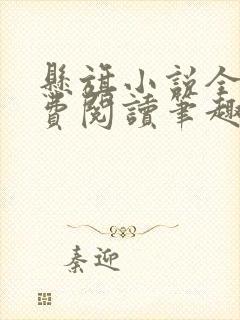 懸旗小說全
費閱讀筆趣
秦迎